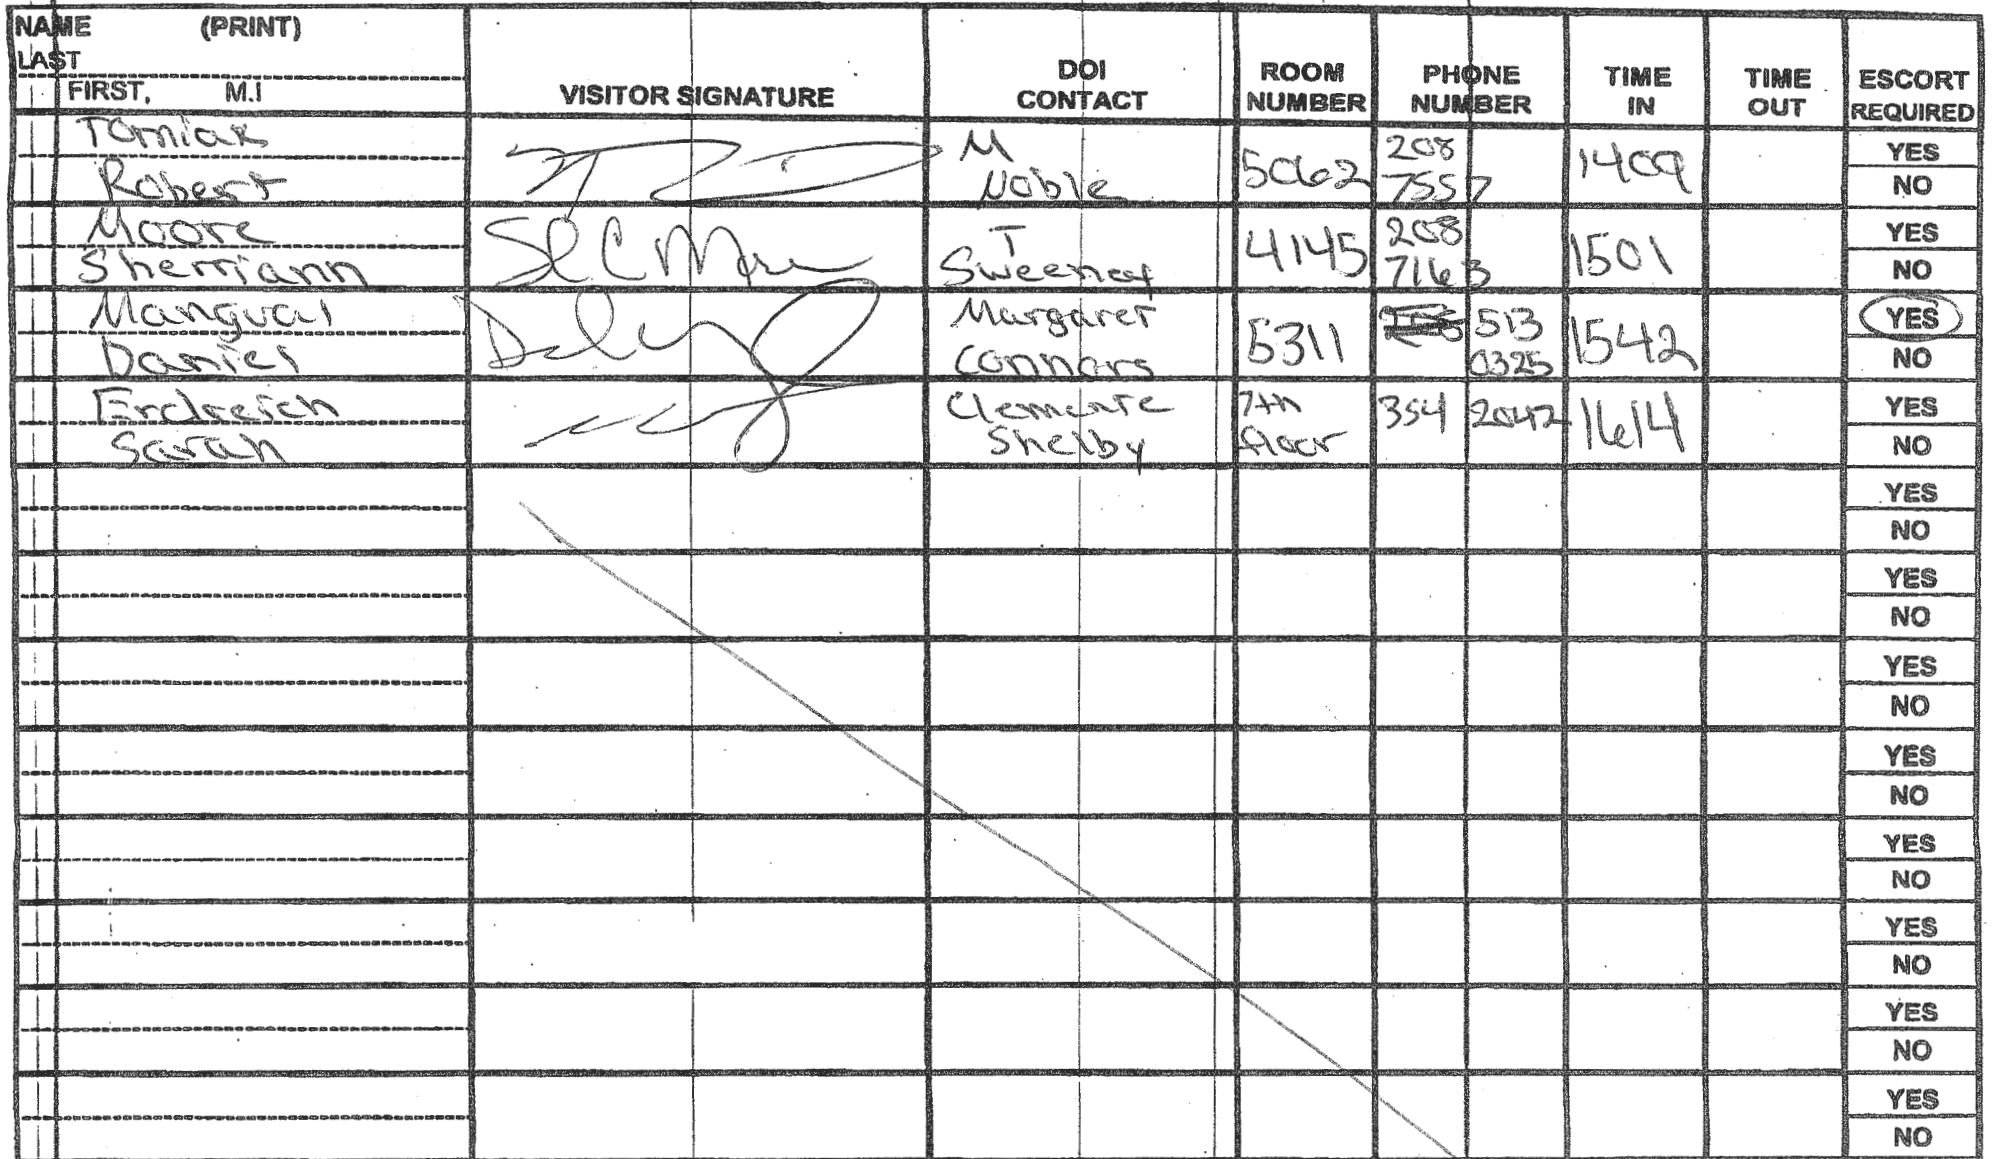 NAME (PRINT)
LAST
FIRST, M.I
VISITOR SIGNATURE
DOI CONTACT
ROOM NUMBER
PHONE NUMBER
TIME IN
TIME OUT
ESCORT REQUIRED
Tomiak
Robert
M
Noble
5062
208
7557
1409
YES
NO
Moore
Sherriann
T
Sweeney
4145
208
7163
1501
YES
NO
Mangual
Daniel
Margaret
Connors
5311
513
0325
1542
YES
NO
Erdreich
Sarah
Clemente
Shelby
7th
floor
354 2042
1614
YES
NO
YES
NO
YES
NO
YES
NO
YES
NO
YES
NO
YES
NO
YES
NO
YES
NO